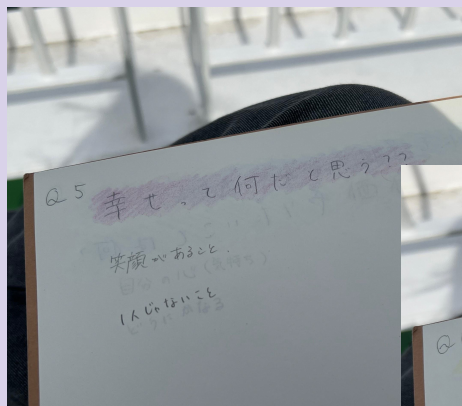 Q5 幸せって何だと思う??
笑顔があること.
1人じゃないこと
Q